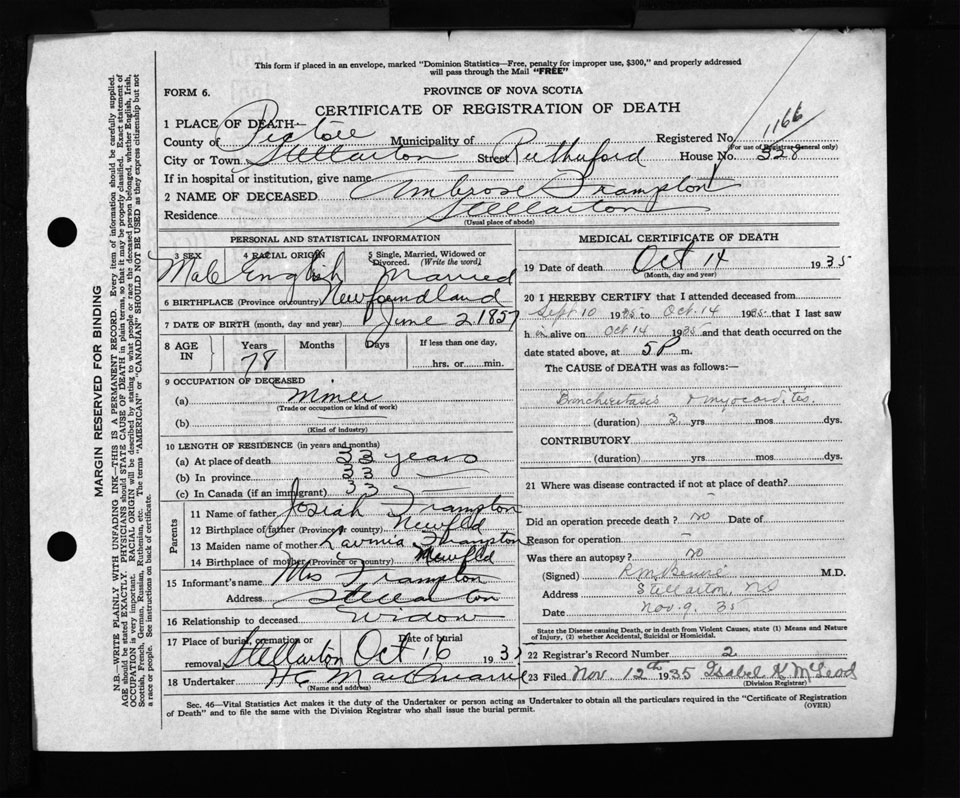 This form if placed in an envelope, marked "Dominion Statistics—Free, penalty for improper use, $300," and properly addressed
will pass through the Mail "FREE"
FORM 6.
PROVINCE OF NOVA SCOTIA
CERTIFICATE OF REGISTRATION OF DEATH
1 PLACE OF DEATH—
County of Pictou Municipality of Registered No. 1166
(For use of Registrar General only)
City or Town Stellarton Street Rutherford House No. 328
If in hospital or institution, give name
2 NAME OF DECEASED Ambrose Frampton
Residence Stellarton
(Usual place of abode)
PERSONAL AND STATISTICAL INFORMATION
3 SEX 4 RACIAL ORIGIN 5 Single, Married, Widowed or Divorced. (Write the word)
Male English Married
6 BIRTHPLACE (Province or country) Newfoundland
7 DATE OF BIRTH (month, day and year) June 2, 1857
8 AGE IN Years Months Days If less than one day,
78 hrs. or min.
9 OCCUPATION OF DECEASED
(a) Miner
(Trade or occupation or kind of work)
(b)
(Kind of industry)
10 LENGTH OF RESIDENCE (in years and months)
(a) At place of death 33 years
(b) In province 33
(c) In Canada (if an immigrant) 33
Parents
11 Name of father Josiah Frampton
12 Birthplace of father (Province or country) Newfld
13 Maiden name of mother Lavinia Frampton
14 Birthplace of mother (Province or country) Newfld
15 Informant's name Mrs Frampton
Address Stellarton
16 Relationship to deceased Widow
17 Place of burial, cremation or removal Stellarton Date of burial Oct 16 193
18 Undertaker H C
(Name and address)
MEDICAL CERTIFICATE OF DEATH
19 Date of death Oct 14 1935
(Month, day and year)
20 I HEREBY CERTIFY that I attended deceased from
Sept 10 1935 to Oct. 14 1935 that I last saw
h im alive on Oct 14 1935 and that death occurred on
date stated above, at 5 P m.
The CAUSE of DEATH was as follows:—
& myocarditis.
(duration) 3 yrs mos dys.
CONTRIBUTORY
(duration) yrs mos dys.
21 Where was disease contracted if not at place of death?
Did an operation precede death? no Date of
Reason for operation —
Was there an autopsy? no
(Signed) M.D.
Address Stellarton, NS
Date Nov. 9. 35
State the Disease causing Death, or in death from Violent Causes, state (1) Means and Nature
of Injury, (2) whether Accidental, Suicidal or Homicidal.
22 Registrar's Record Number 2
23 Filed Nov. 12th 1935 Isabel K McLeod
(Division Registrar)
Sec. 46—Vital Statistics Act makes it the duty of the Undertaker or person acting as Undertaker to obtain all the particulars required in the "Certificate of Registration
of Death" and to file the same with the Division Registrar who shall issue the burial permit.
(OVER)
MARGIN RESERVED FOR BINDING
N.B.—WRITE PLAINLY WITH UNFADING INK—THIS IS A PERMANENT RECORD. Every item of information should be carefully supplied.
AGE should be stated EXACTLY. PHYSICIANS should STATE CAUSE OF DEATH in plain terms, so that it may be properly classified. Exact statement of
OCCUPATION is very important. RACIAL ORIGIN will be described by stating to what people or race the deceased person belonged, whether English, Irish,
Scottish, French, German, Russian, Ruthenian, etc. The terms "AMERICAN" or "CANADIAN" SHOULD NOT BE USED as they express citizenship but not
a race or people. See instructions on back of certificate.